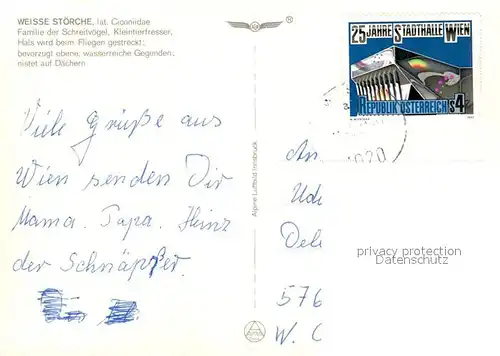 WEISSE STÖRCHE, lat. Ciconiidae
Familie der Schreitvögel, Kleintierfresser,
Hals wird beim Fliegen gestreckt;
bevorzugt ebene, wasserreiche Gegenden;
nistet auf Dächern
25 JAHRE STADTHALLE WIEN
REPUBLIK ÖSTERREICH S4
1020
Viele Grüße aus
Wien senden Dir
Mama. Papa. Heinz
der Schnäpser.
Alpine Luftbild Innsbruck
An
Ude
Del
576
W. C
privacy protection
Datenschutz